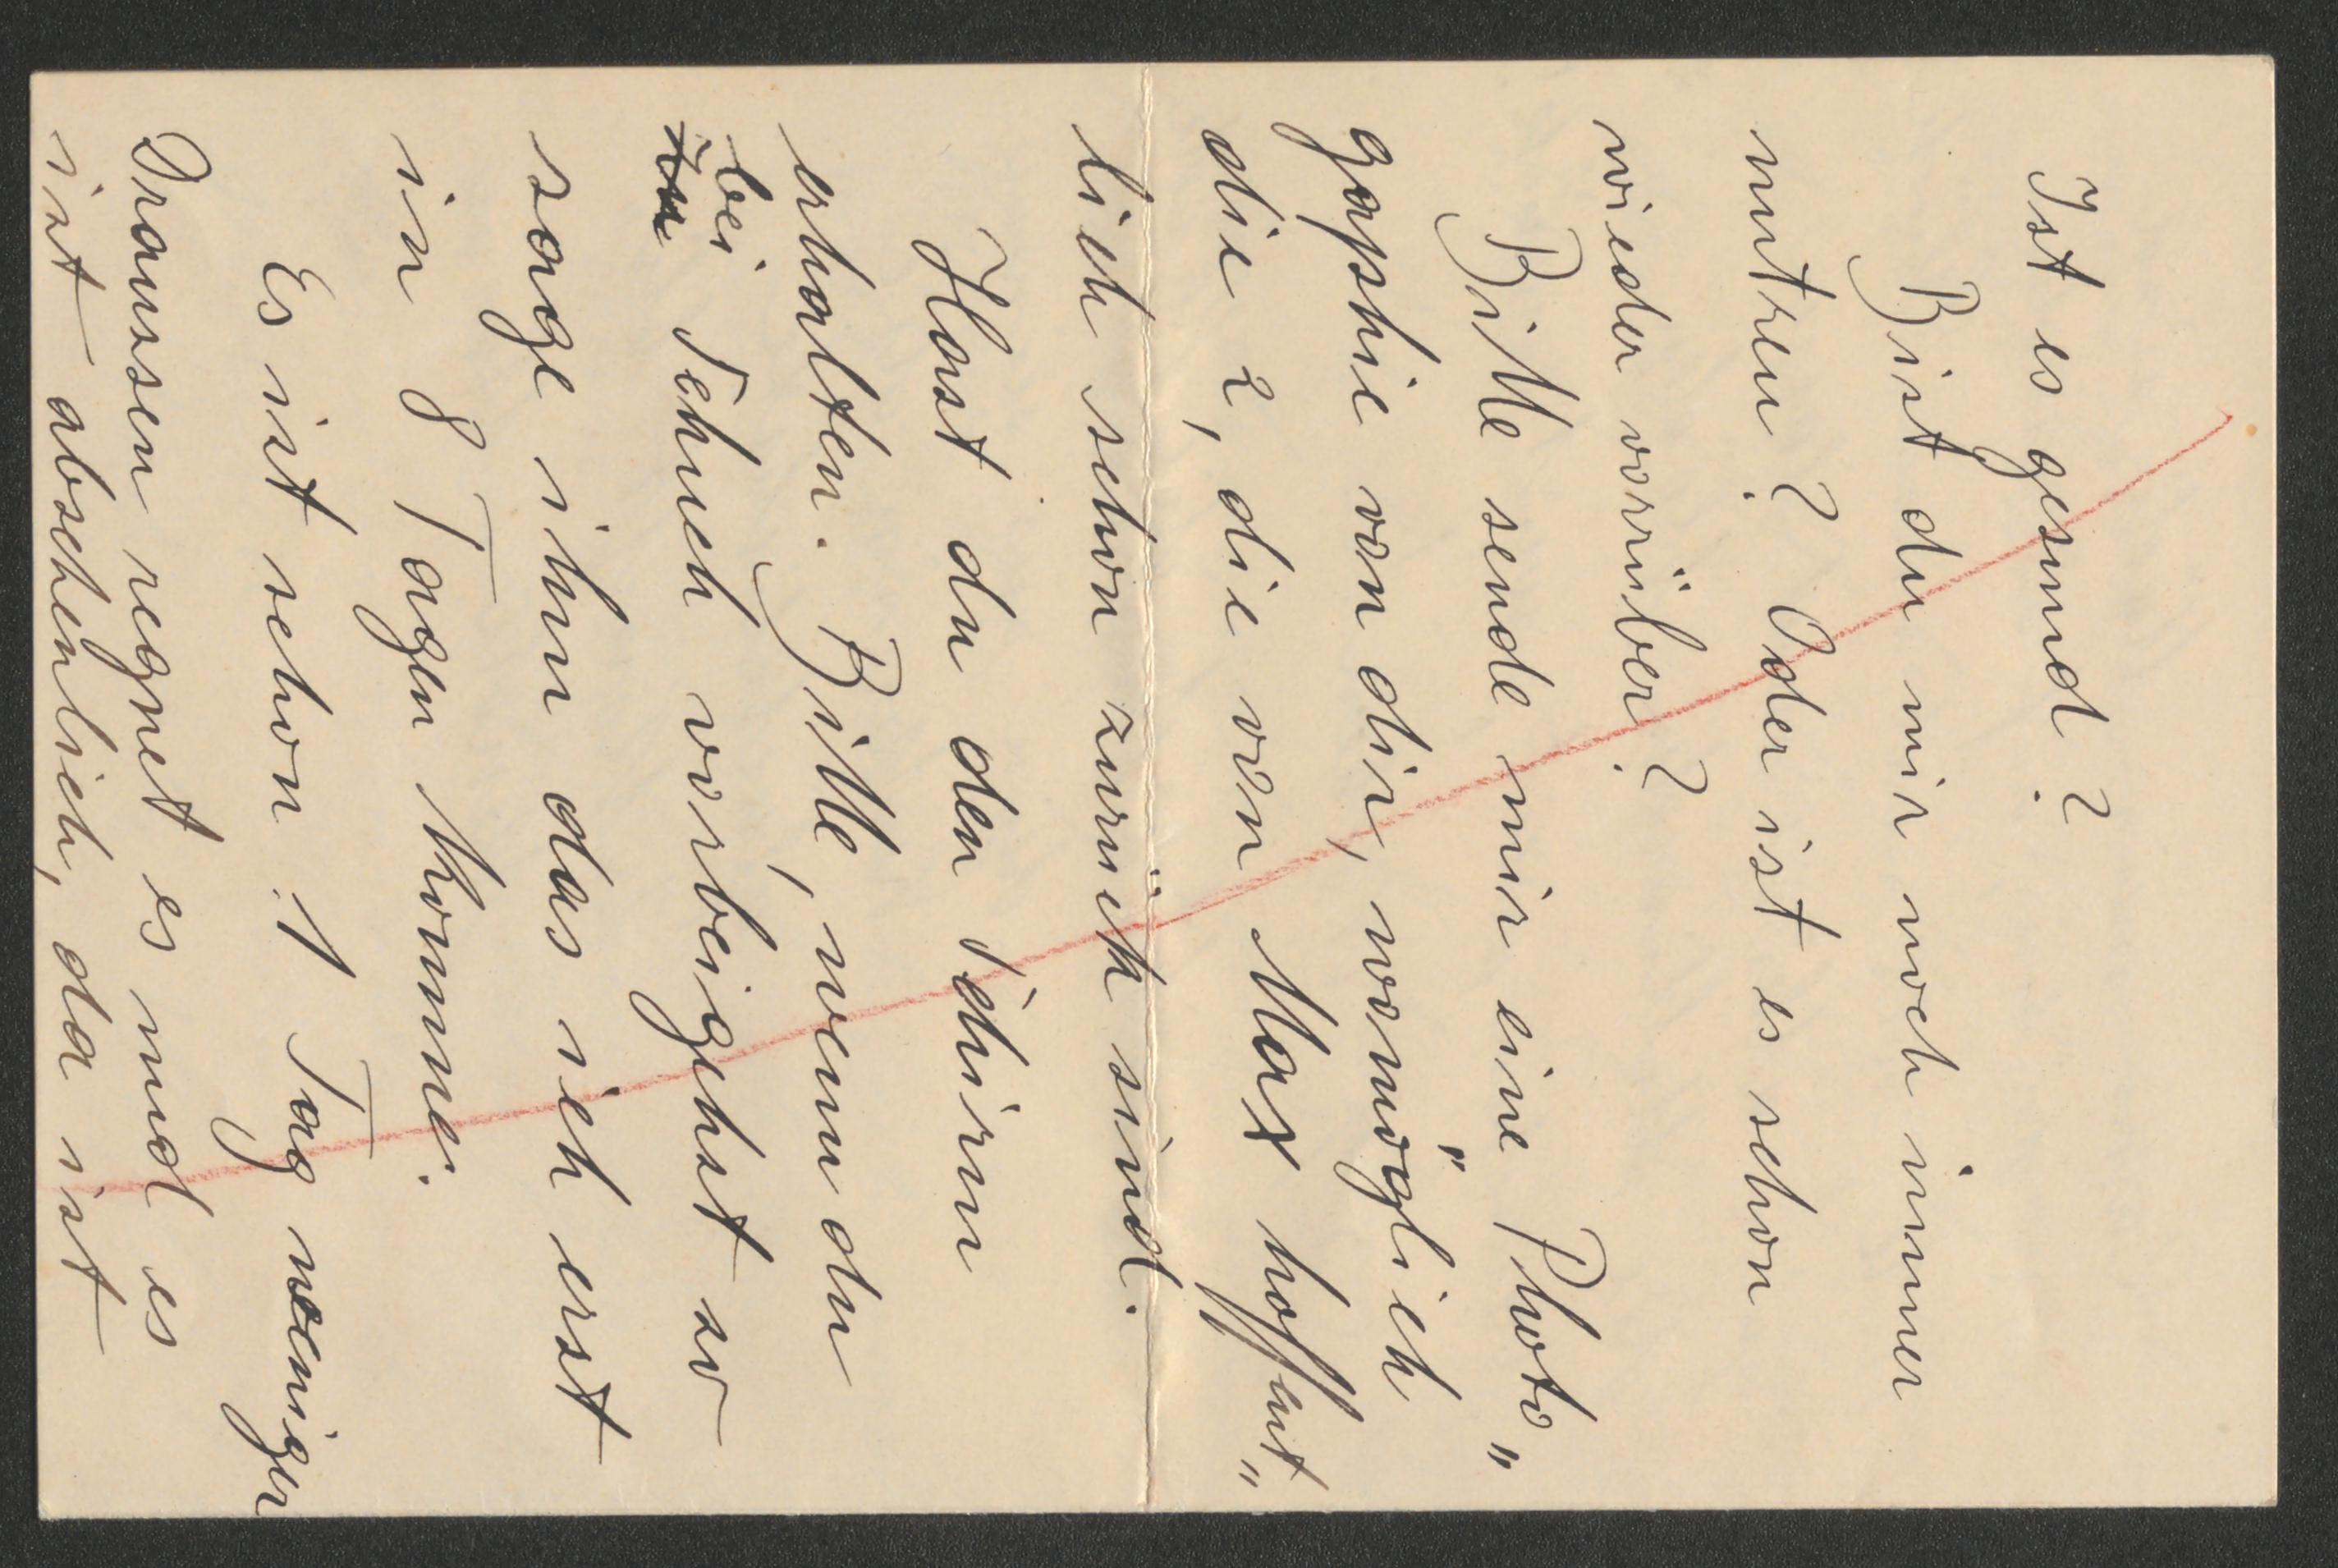 Ist es gesund?
Bist du mir noch immer
untreu? Oder ist es schon
wieder vorrüber?
Bitte sende mir eine Photo„
gaphie von dir, womöglich
die 2, die von Max hoffent„
lich schon zurück sind.
Hast du den Schirm
erhalten. Bitte, wenn du
bei Schuch vorbeigehst so
sage ihm das ich erst
in 8 Tagen komme.
Es ist schon 1 Tag weeniger
Draussen regnet es und es
ist abscheulich, da ist